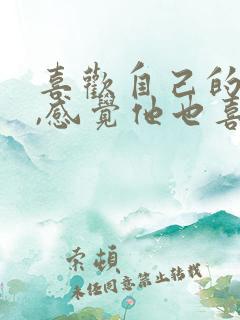 喜歡自己的
,感覺他也喜
索頓
未經同意禁止轉載